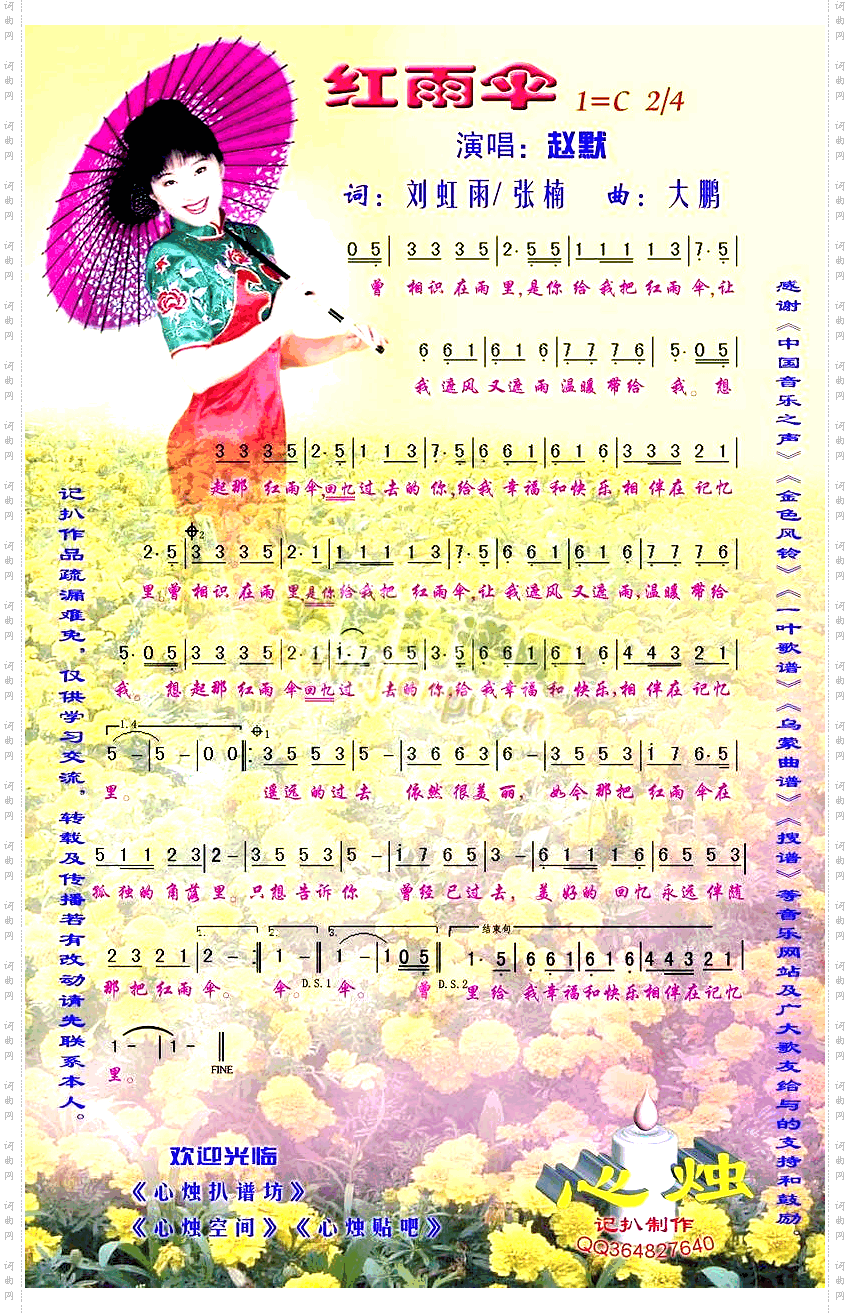 红雨伞 1=C 2/4
演唱：赵默
词：刘虹雨/张楠 曲：大鹏
0 5 | 3 3 3 5 | 2· 5 5 | 1 1 1 1 3 | 7· 5 |
曾 相识在雨里,是你给我把红雨伞,让
6 6 1 | 6 1 6 | 7 7 7 6 | 5· 0 5 |
我遮风又遮雨温暖带给 我。想
3 3 3 5 | 2· 5 | 1 1 3 | 7· 5 | 6 6 1 | 6 1 6 | 3 3 3 2 1 |
起那 红雨伞,回忆过去的你,给我幸福和快乐相伴在记忆
2· 5 | 3 3 3 5 | 2· 1 | 1 1 1 1 3 | 7· 5 | 6 6 1 | 6 1 6 | 7 7 7 6 |
里,曾相识在雨里是你给我把 红雨伞,让我遮风又遮雨,温暖带给
5· 0 5 | 3 3 3 5 | 2· 1 | 1· 7 6 5 | 3· 5 | 6 6 1 | 6 1 6 | 4 4 3 2 1 |
我。想起那红雨伞回忆过 去的你,给我幸福和快乐,相伴在记忆
1.4
1
5 - | 5 - | 0 0 :| 3 5 5 3 | 5 - | 3 6 6 3 | 6 - | 3 5 5 3 | 1 7 6· 5 |
里。 遥远的过去 依然很美丽，如今那把红雨伞在
5 1 1 2 3 | 2 - | 3 5 5 3 | 5 - | 1 7 6 5 | 3 - | 6 1 1 1 6 | 5 5 5 3 |
孤独的角落里。只想告诉你 曾经已过去，美好的 回忆永远伴随
1. 2. 3. 结束句
2 3 2 1 | 2 - :| 1 - | 1 - | 1 0 5 | 1· 5 | 6 6 1 | 6 1 6 | 4 4 3 2 1 |
那把红雨伞。 伞。D.S.1 伞。 曾 D.S.2 里给我幸福和快乐相伴在记忆
1 - | 1 - ‖
里。 FINE
记扒作品疏漏难免，仅供学习交流，转载及传播若有改动请先联系本人。
感谢《中国音乐之声》《金色风铃》《一叶歌谱》《乌蒙曲谱》《搜谱》等音乐网站及广大歌友给与的支持和鼓励。
欢迎光临
《心烛扒谱坊》
《心烛空间》《心烛贴吧》
心烛
记扒制作
QQ364827640
词曲网